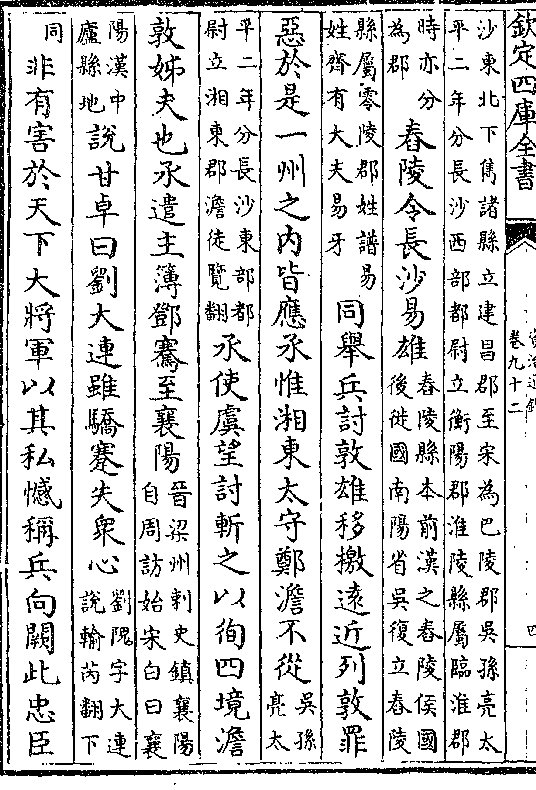 欽定四庫全書
資治通鑑
卷九十二
四
沙東北下雋諸縣立建昌郡至宋為巴陵郡吳孫亮太
平二年分長沙西部都尉立衡陽郡淮陵縣屬臨淮郡
時亦分
為郡
舂陵令長沙易雄
舂陵縣本前漢之舂陵侯國
後徙國南陽省吳復立舂陵
縣屬零陵郡姓譜易
姓齊有大夫易牙
同舉兵討敦雄移檄遠近列敦罪
惡於是一州之內皆應承惟湘東太守鄭澹不從
吳孫
亮太
平二年分長沙東部都
尉立湘東郡澹徒覽翻
承使虞望討斬之以徇四境澹
敦姊夫也承遣主簿鄧騫至襄陽
晉梁州刺史鎮襄陽
自周訪始宋白曰襄
陽漢中
廬縣地
說甘卓曰劉大連雖驕蹇失衆心
劉隗字大連
說輸芮翻下
同
非有害於天下大將軍以其私憾稱兵向闕此忠臣